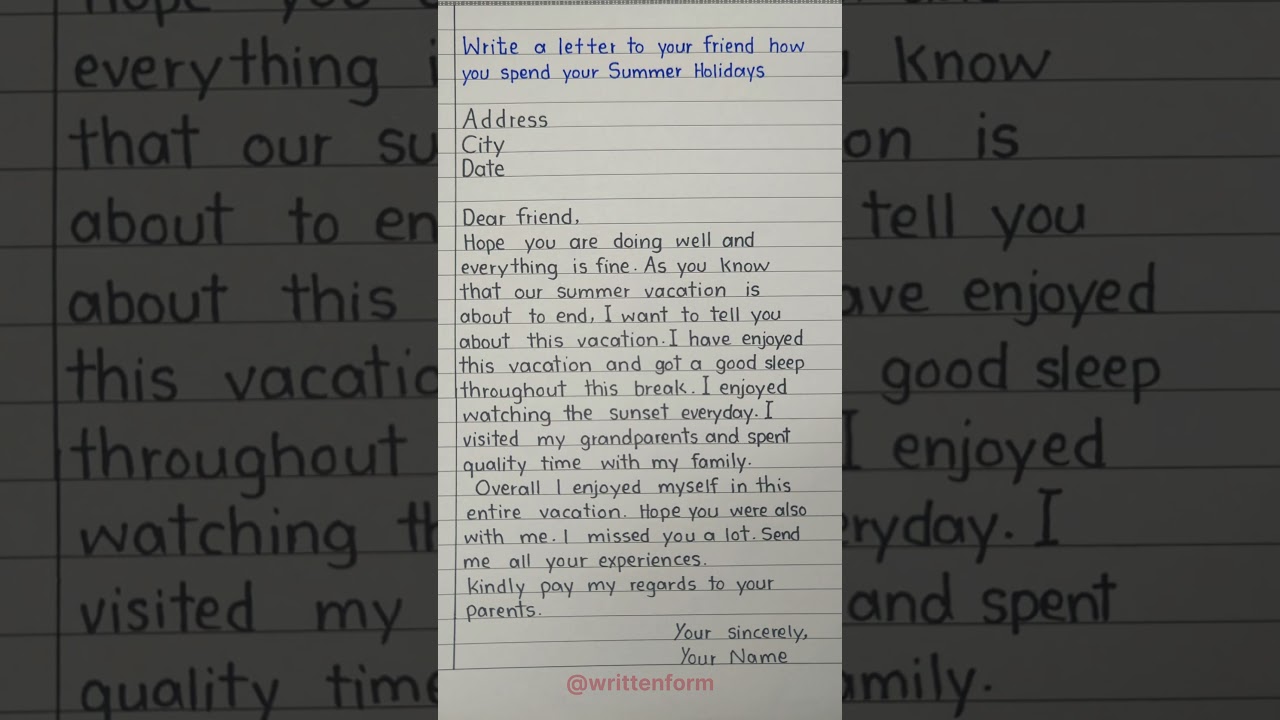 Write a letter to your friend how
you spend your Summer Holidays
Address
City
Date
Dear friend,
Hope you are doing well and
everything is fine. As you know
that our summer vacation is
about to end, I want to tell you
about this vacation. I have enjoyed
this vacation and got a good sleep
throughout this break. I enjoyed
watching the sunset everyday. I
visited my grandparents and spent
quality time with my family.
Overall I enjoyed myself in this
entire vacation. Hope you were also
with me. I missed you a lot. Send
me all your experiences.
Kindly pay my regards to your
parents.
Your sincerely,
Your Name
@writtenform